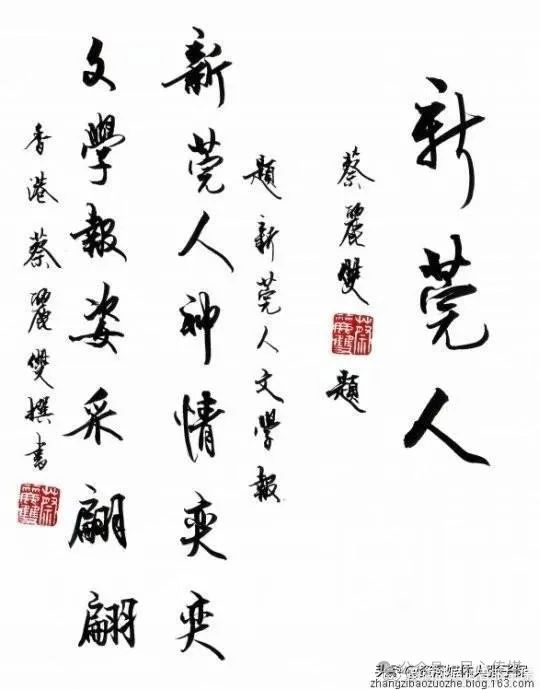 新莞人
蔡麗雙題
題新莞人文學報
新莞人神情奕奕
文學報姿采翩翩
香港蔡麗雙撰書
zhangzibaozuozhe.blog.163.com